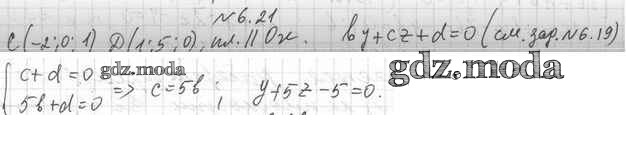 №6.21
C(-2;0;1) D(1;5;0), пл. || Ox. by+cz+d=0 (см. зар. №6.19)
{ c+d=0 gdz.moda
5b+d=0 => c=5b ; y+5z-5=0.
gdz.moda